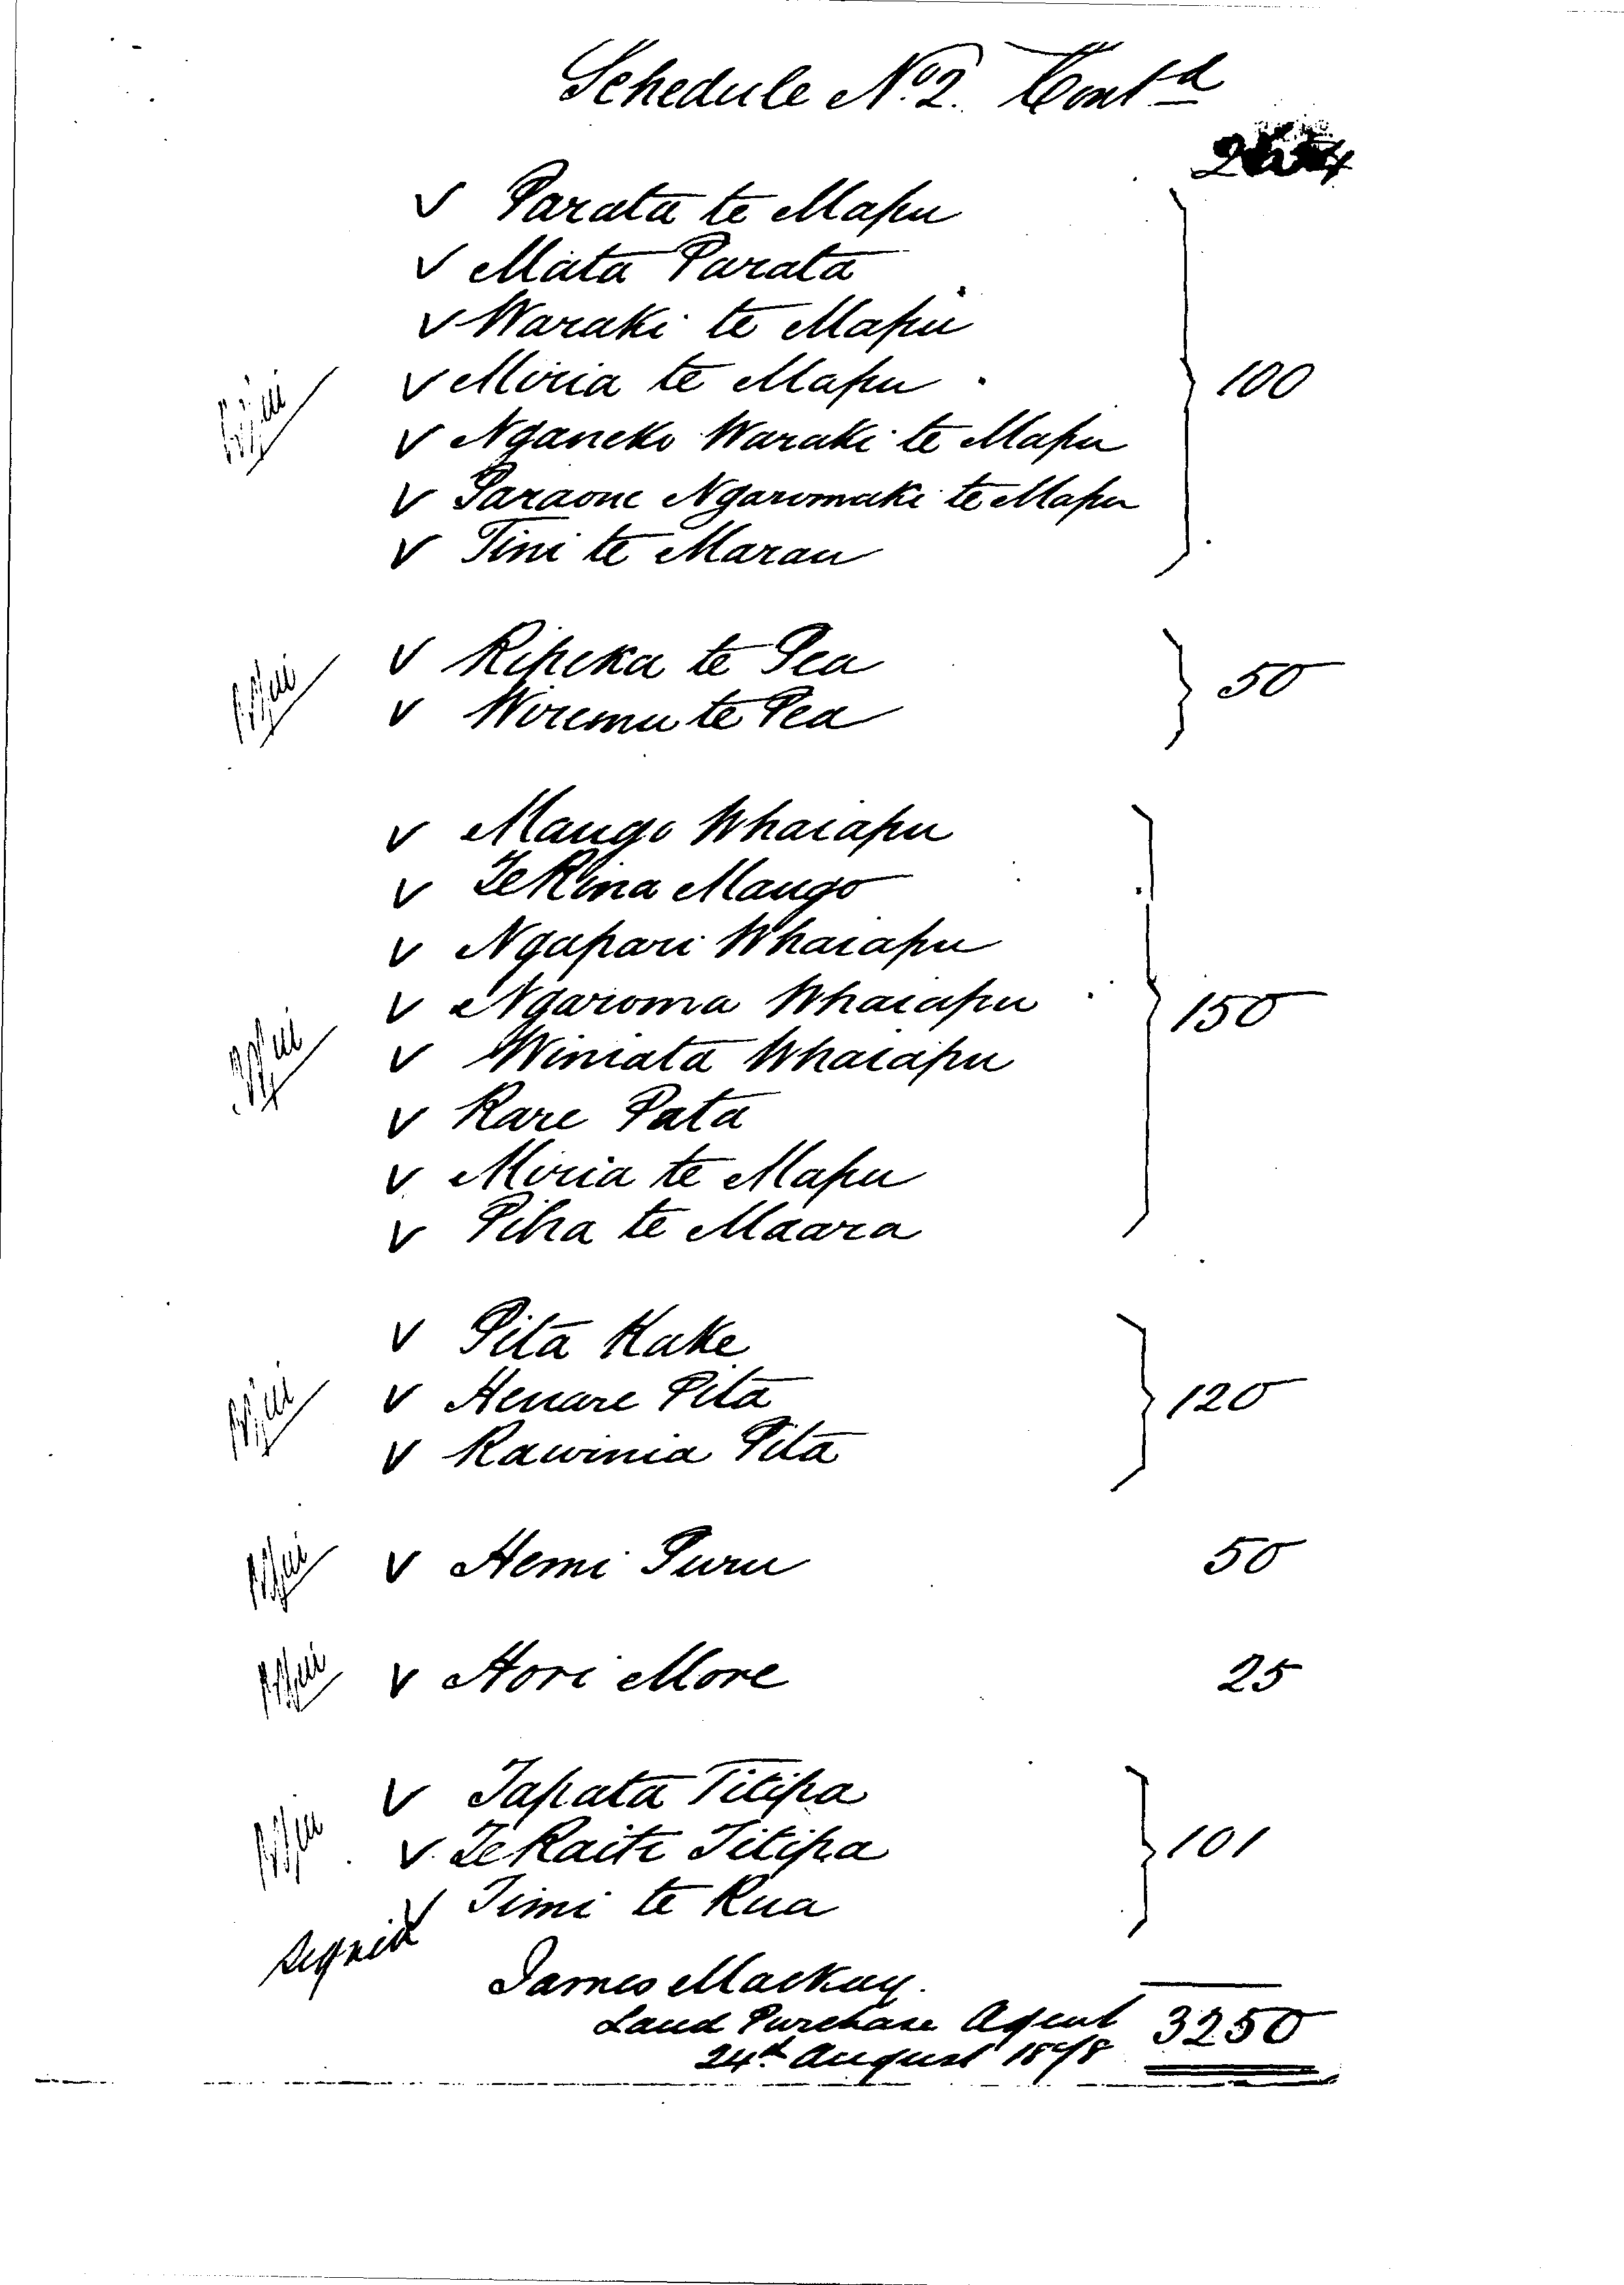 Schedule No. 2. Contd
2654
v Parata te Mapu
v Mata Parata
v Waraki te Mapu
v Miria te Mapu 100
v Nganeko Waraki te Mapu
v Paraone Ngaromaki te Mapu
v Tini te Marau
v Ripeka te Pea 50
v Wiremu te Pea
v Mango Whaiapu
v Te Rina Mango
v Ngapari Whaiapu
v Ngaroma Whaiapu 150
v Winiata Whaiapu
v Rare Pata
v Miria te Mapu
v Piha te Maara
v Pita Kake
v Henare Pita 120
v Rawinia Pita
v Hemi Puru 50
v Hori More 25
v Tapata Titipa
v Te Raiti Titipa 101
v Timi te Rua
signed
James Mackay.
Land Purchase Agent 3250
24th August 1878